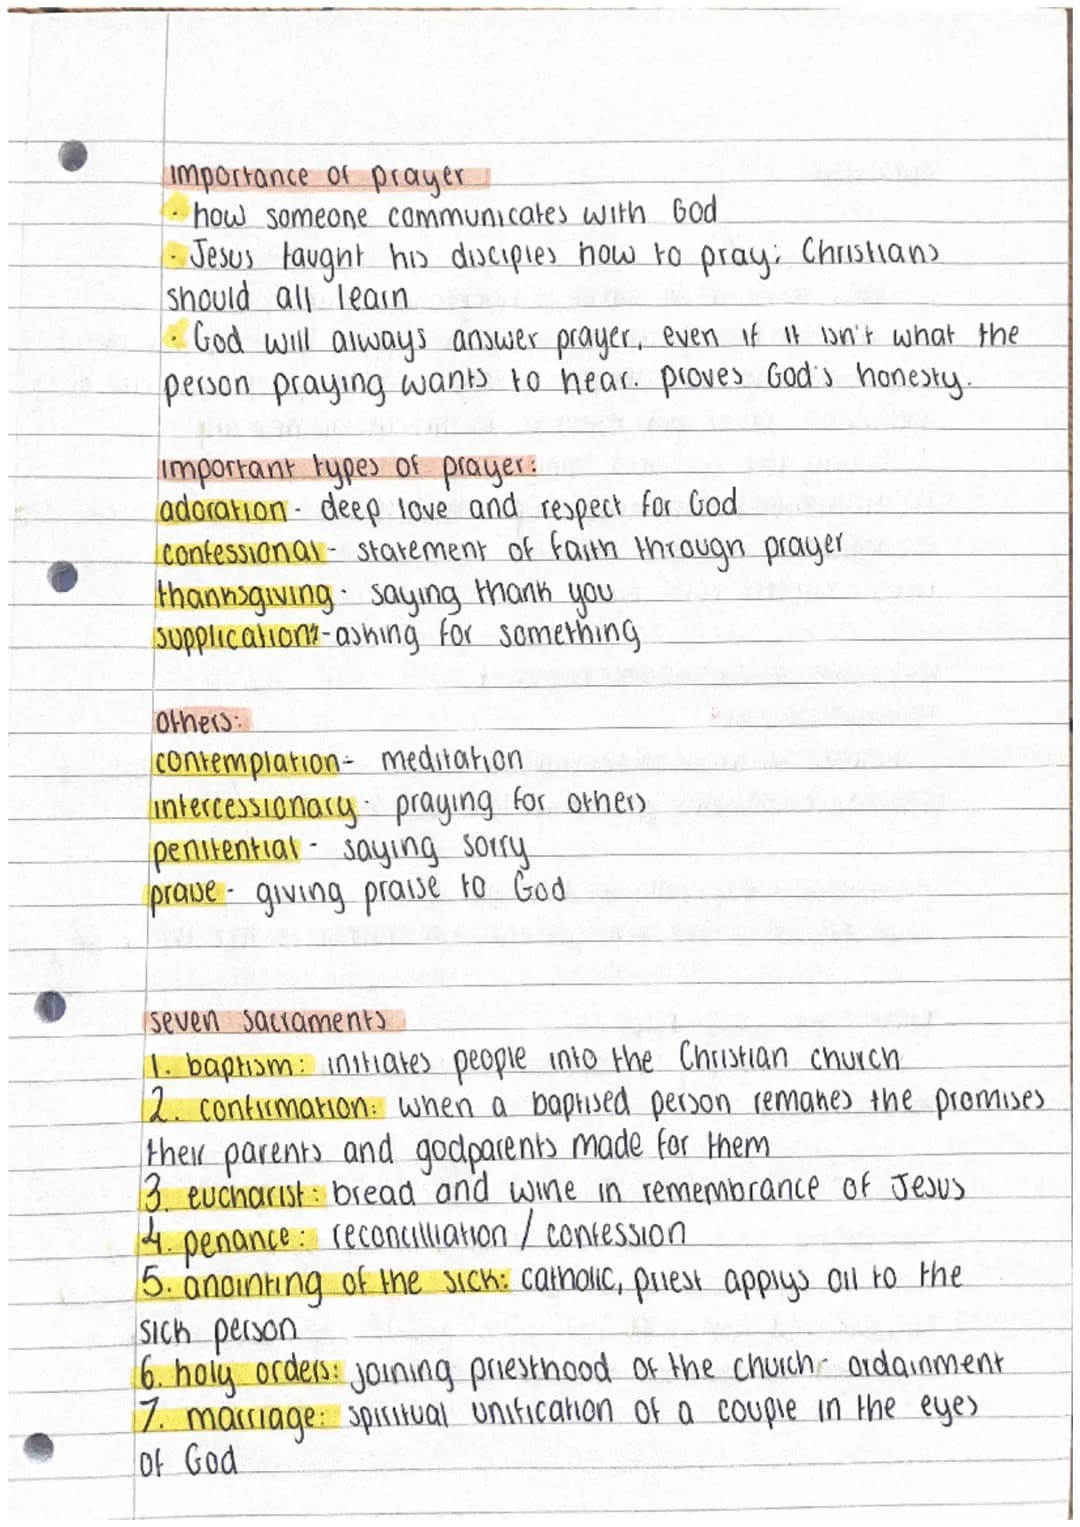 importance of prayer
· how someone communicates with God
· Jesus taught his disciples how to pray; Christians
should all learn
· God will always answer prayer, even if it isn't what the
person praying wants to hear. proves God's honesty.
important types of prayer:
adoration - deep love and respect for God
confessional - statement of faith through prayer
thanksgiving - saying thank you
supplication - asking for something
others:
contemplation - meditation
intercessionary - praying for others
penitential - saying sorry
praise - giving praise to God
seven sacraments
1. baptism: initiates people into the Christian church
2. confirmation: when a baptised person remakes the promises
their parents and godparents made for them
3. eucharist: bread and wine in remembrance of Jesus
4. penance: reconcilliation / confession
5. anointing of the sick: catholic, priest applys oil to the
sick person
6. holy orders: joining priesthood of the church - ordainment
7. marriage: spiritual unification of a couple in the eyes
of God